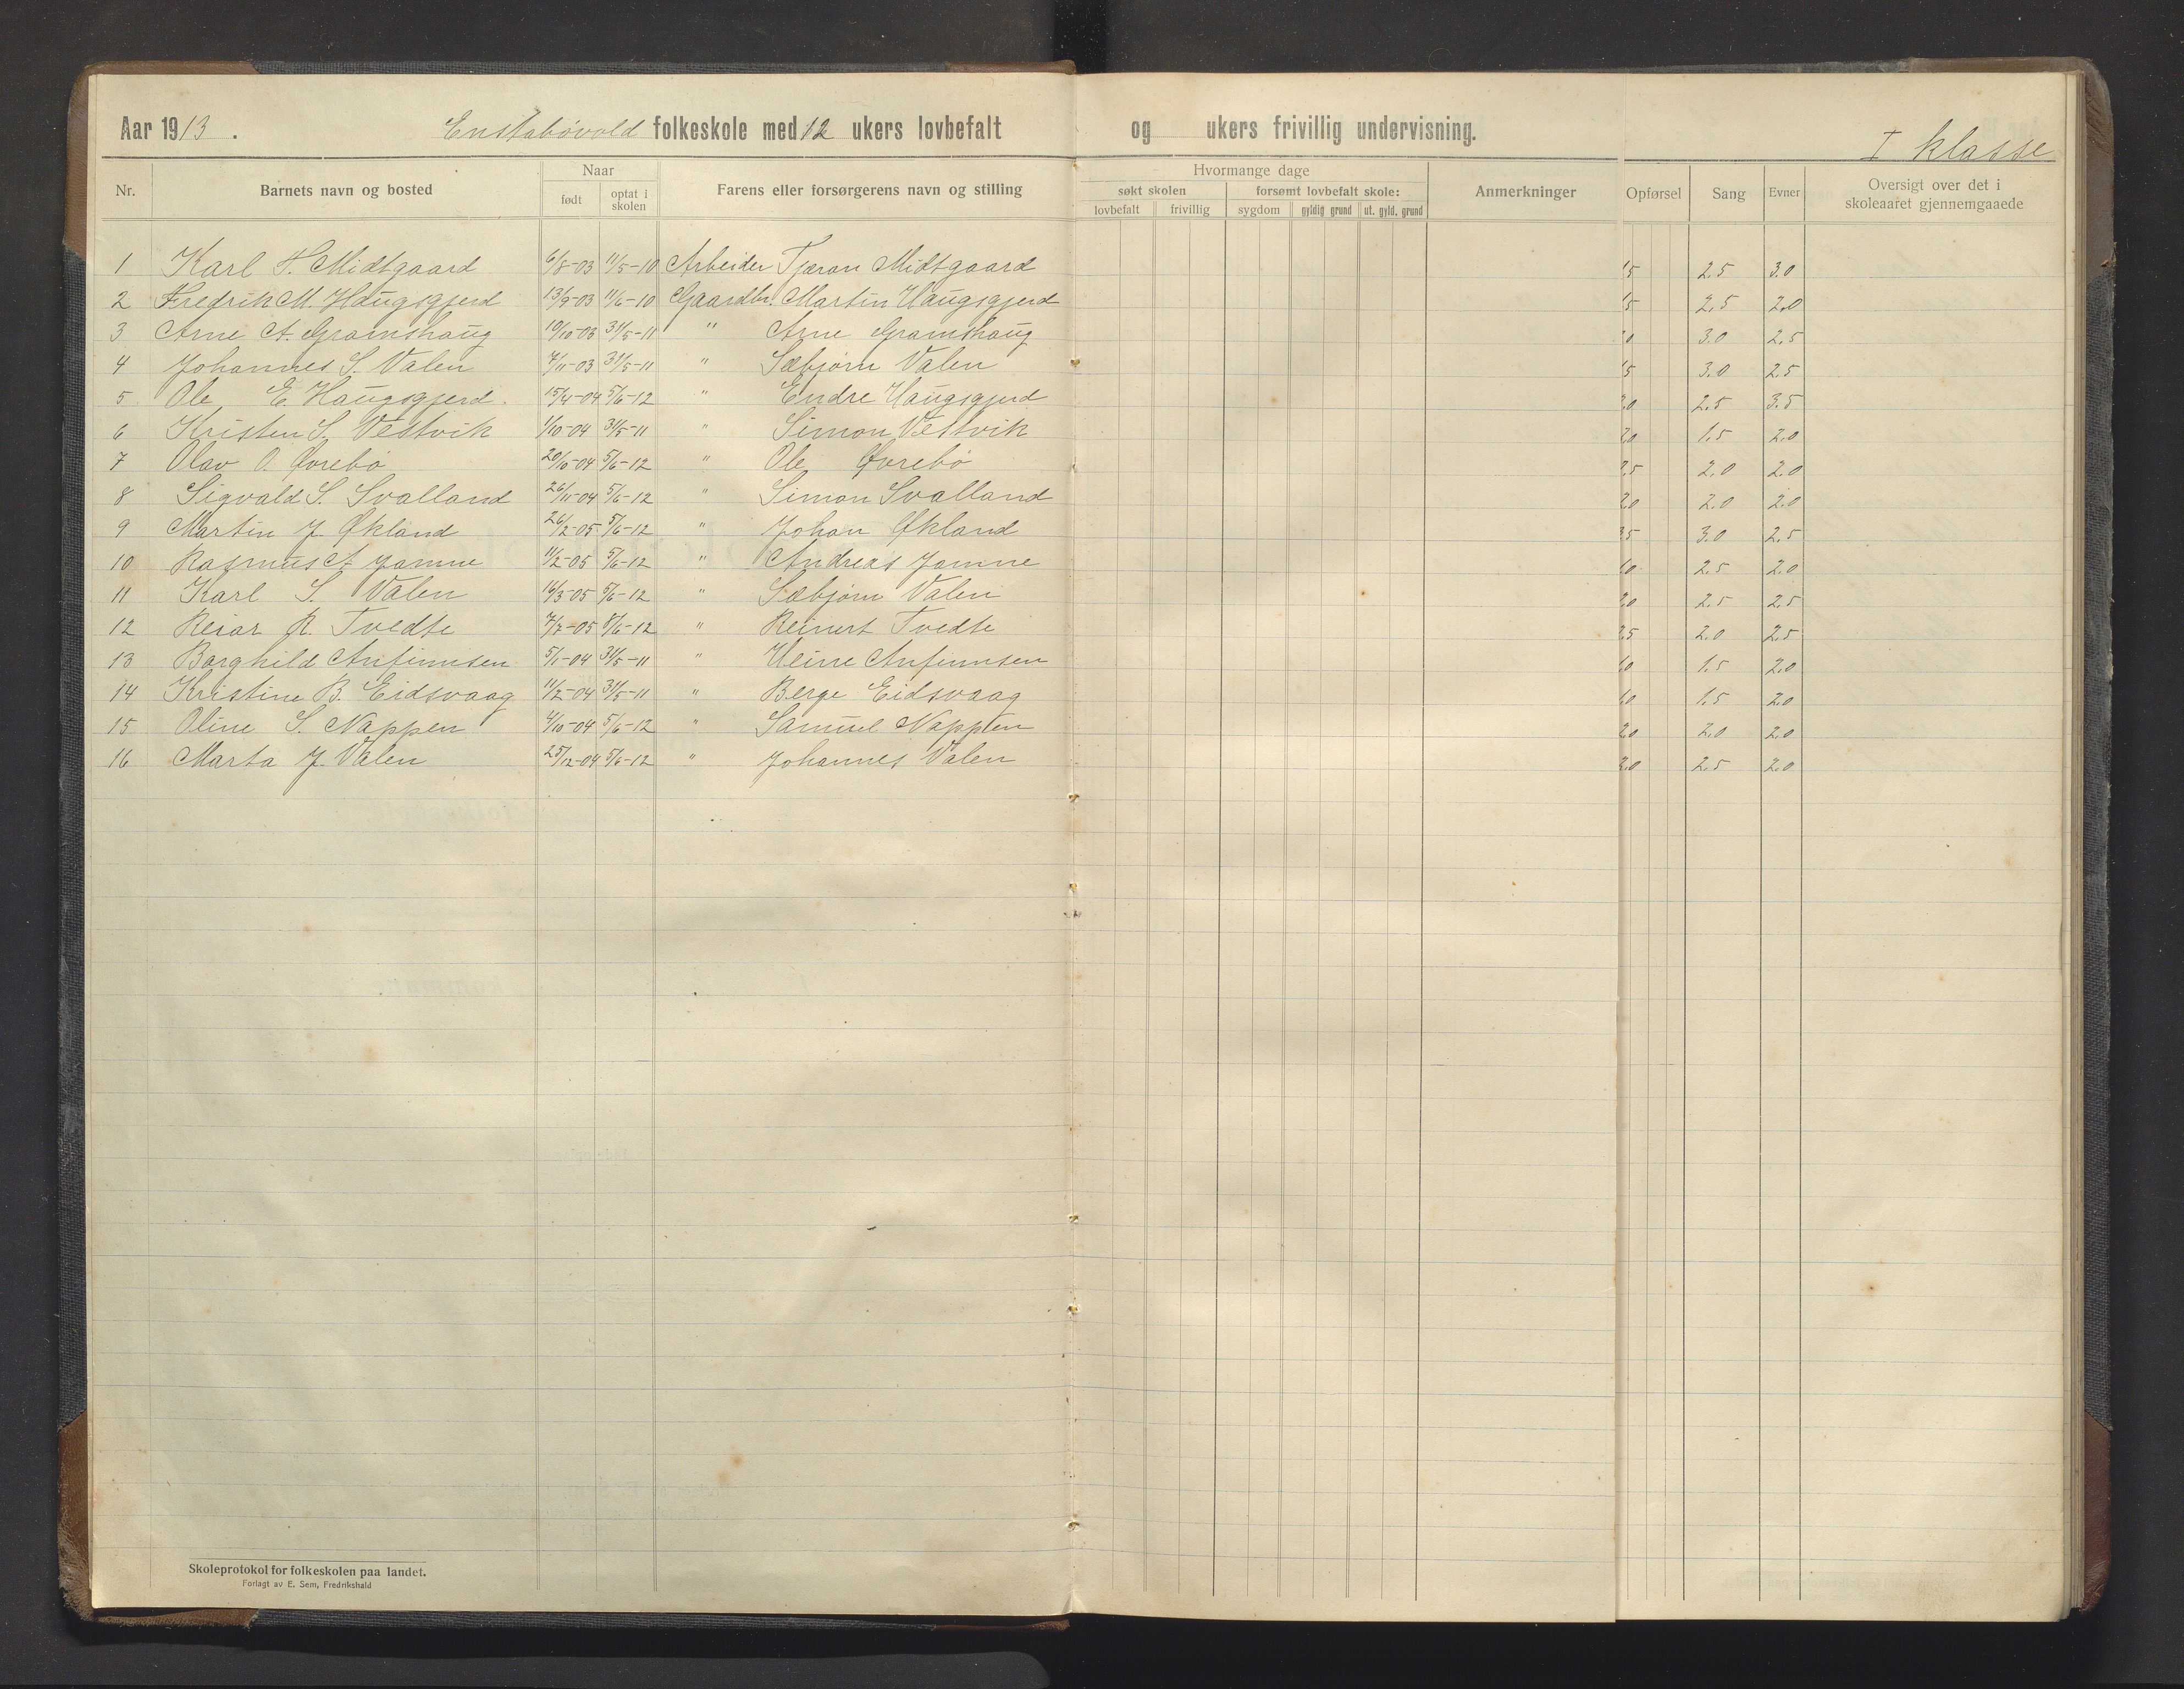 Aar 1913. Enstabøvold folkeskole med 12 ukers lovbefalt og ukers frivillig undervisning.
I klasse
Nr. Barnets navn og bosted Naar født optat i skolen Farens eller forsørgerens navn og stilling Hvormange dage søkt skolen lovbefalt frivillig forsømt lovbefalt skole: sygdom gyldig grund ut. gyld. grund Anmerkninger Opførsel Sang Evner Oversigt over det i skoleaaret gjennemgaaede
1 Karl T. Midtgaard 6/8-03 11/5-10 Arbeider Tjæran Midtgaard 15 2.5 3.0
2 Fredrik M. Haugsgjerd 13/9-03 11/6-10 Gaardbr. Martin Haugsgjerd 15 2.5 2.0
3 Arne A. Gramshaug 10/10-03 31/5-11 " Arne Gramshaug 0 3.0 2.5
4 Johannes S. Valen 7/11-03 31/5-11 " Sæbjørn Valen 15 3.0 2.5
5 Ole E. Haugsgjerd 15/4-04 5/6-12 " Endre Haugsgjerd 2.0 2.5 3.5
6 Kristen S. Vestvik 1/10-04 31/5-11 " Simon Vestvik 2.0 1.5 2.0
7 Olav O. Øvrebø 20/10-04 5/6-12 " Ole Øvrebø 2.5 2.0 2.0
8 Sigvald S. Svalland 26/11-04 5/6-12 " Simon Svalland 2.0 2.0 2.0
9 Martin J. Økland 26/2-05 5/6-12 " Johan Økland 35 3.0 2.5
10 Rasmus A Jamne 11/2-05 5/6-12 " Andreas Jamne 1.0 2.5 2.0
11 Karl S. Valen 16/3-05 5/6-12 " Sæbjørn Valen 2.0 2.5 2.5
12 Reiar R. Tvedte 7/7-05 5/6-12 " Reinert Tvedte 2.5 2.0 2.5
13 Borghild Anfinnsen 5/1-04 31/5-11 " Heine Anfinnsen 1.0 1.5 2.0
14 Kristine B. Eidsvaag 11/2-04 31/5-11 " Berge Eidsvaag 1.0 1.5 2.0
15 Oline S. Nappen 4/10-04 5/6-12 " Samuel Nappen 2.0 2.0 2.0
16 Marta J. Valen 25/12-04 5/6-12 " Johannes Valen 2.0 2.5 2.0
Skoleprotokol for folkeskolen paa landet.
Forlagt av E. Sem, Fredrikshald